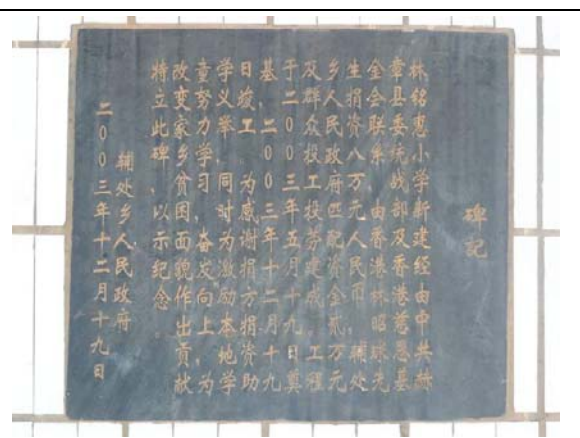 碑记
林铭惠小学新建经由中共赫
章县委统战部及香港慈恩基
金会联系，由香港林昭珠先
生捐资八万元人民币，辅处
乡人民政府匹配资金贰万元
及群众投工投劳建成。工程
于二00三年五月十九日奠
基，二00三年十二月十九
日竣工。为感谢捐方捐资助
学义举，同时为激励本地学
童努力学习，奋发向上，为
改变家乡贫困面貌作出贡献
特立此碑，以示纪念。
辅处乡人民政府
二00三年十二月十九日